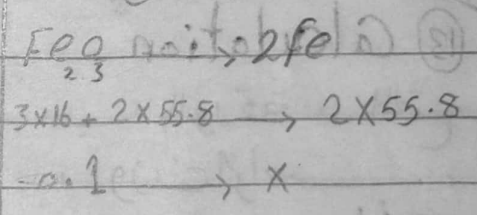 Fe₂O₃ → 2Fe
3×16 + 2×55.8 → 2×55.8
0.1 → x